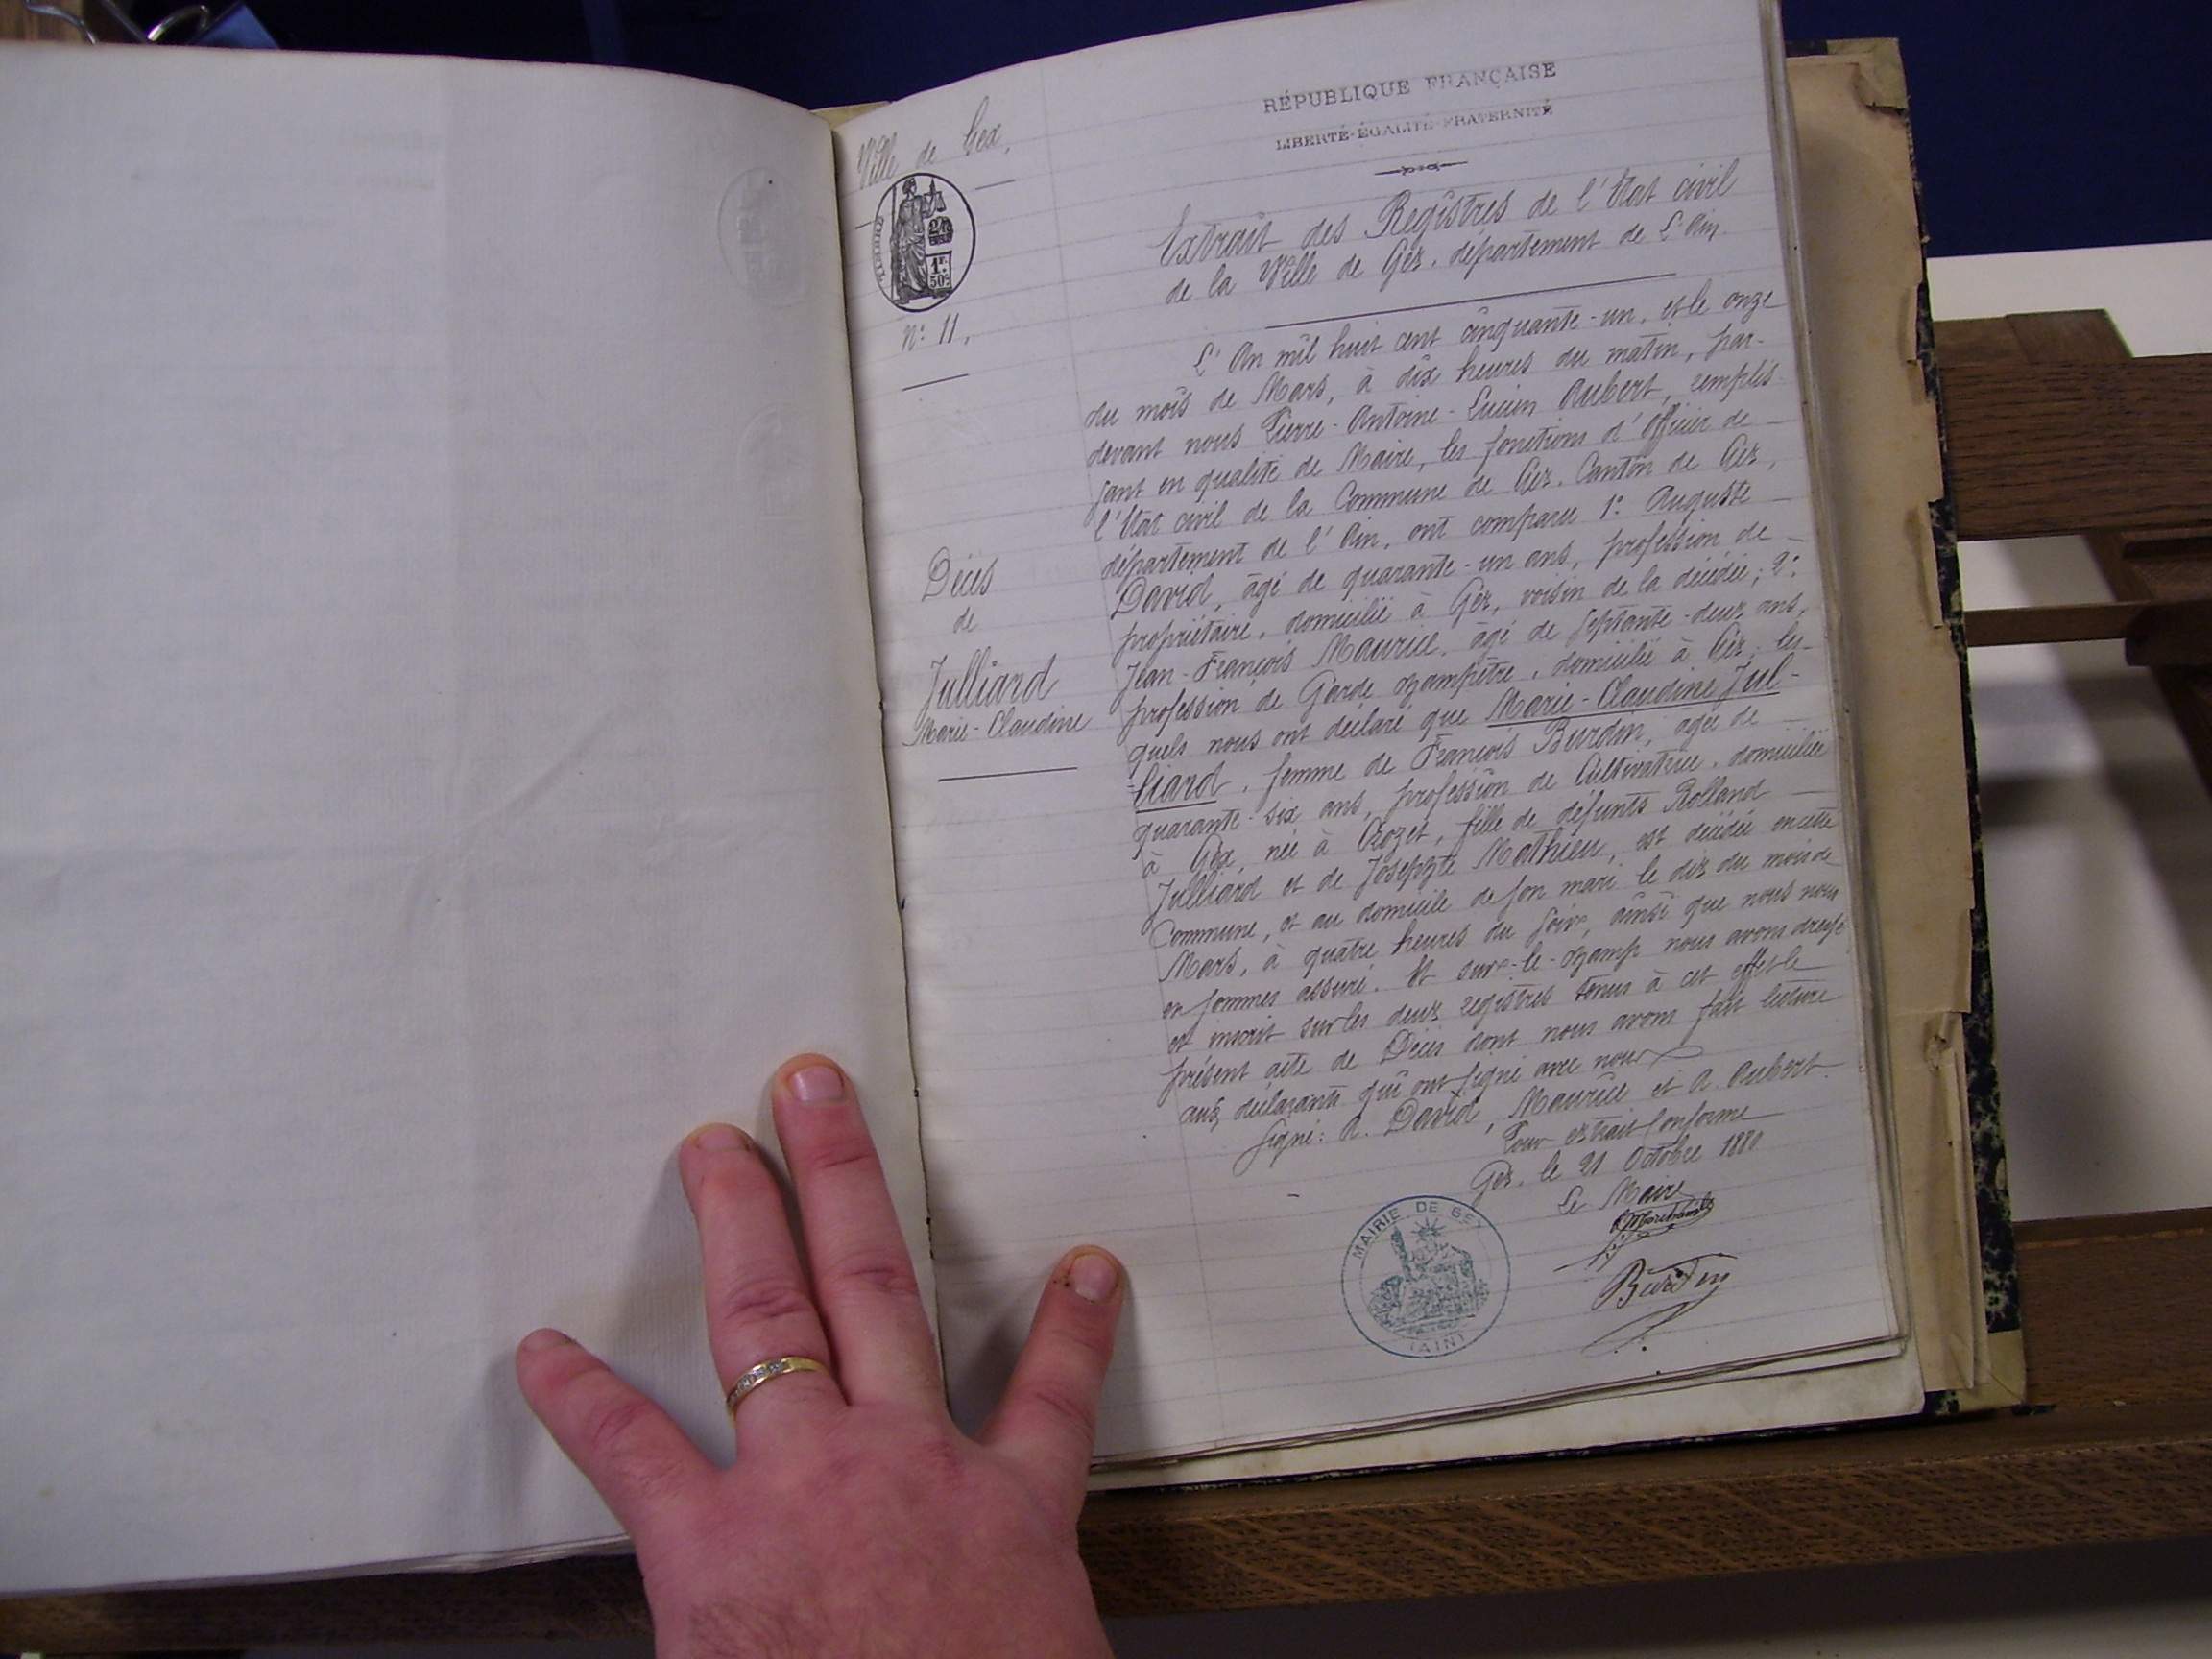 RÉPUBLIQUE FRANÇAISE
LIBERTÉ-ÉGALITÉ-FRATERNITÉ
Ville de Gex,
2/10 EN SUS
1F. 50C
N° 11,
Extrait des Registres de l'Etat civil
de la Ville de Gex, département de L'Ain.
L'An mil huit cent cinquante-un, et le onze
du mois de Mars, à dix heures du matin, par-
devant nous Pierre-Antoine-Lucien Aubert, remplis-
sant en qualité de Maire, les fonctions d'Officier de
l'Etat civil de la Commune de Gex, Canton de Gex,
département de l'Ain, ont comparu 1° Auguste
David, âgé de quarante-un ans, profession de
propriétaire, domicilié à Gex, voisin de la décédée; 2°
Jean-François Maurice, âgé de septante-deux ans,
profession de Garde champêtre, domicilié à Gex; les-
quels nous ont déclaré que Marie-Claudine Jul-
=liard, femme de François Burdin, agée de
quarante-six ans, profession de Cultivatrice, domiciliée
à Gex, née à Crozet, fille de défunts Rolland
Julliard et de Josephte Mathieu, est décédée en cette
Commune, et au domicile de son mari le dix du mois de
Mars, à quatre heures du soir, ainsi que nous nous
en sommes assuré. Et sur-le-champ nous avons dressé
et inscrit sur les deux registres tenus à cet effet le
présent acte de Décès dont nous avons fait lecture
aux déclarants qui ont signé avec nous
Signé: A. David, Maurice et A. Aubert.
Décès
de
Julliard
Marie-Claudine
Pour extrait Conforme
Gex, le 21 Octobre 1880
Le Maire
Burdin
MAIRIE DE GEX
(AIN)